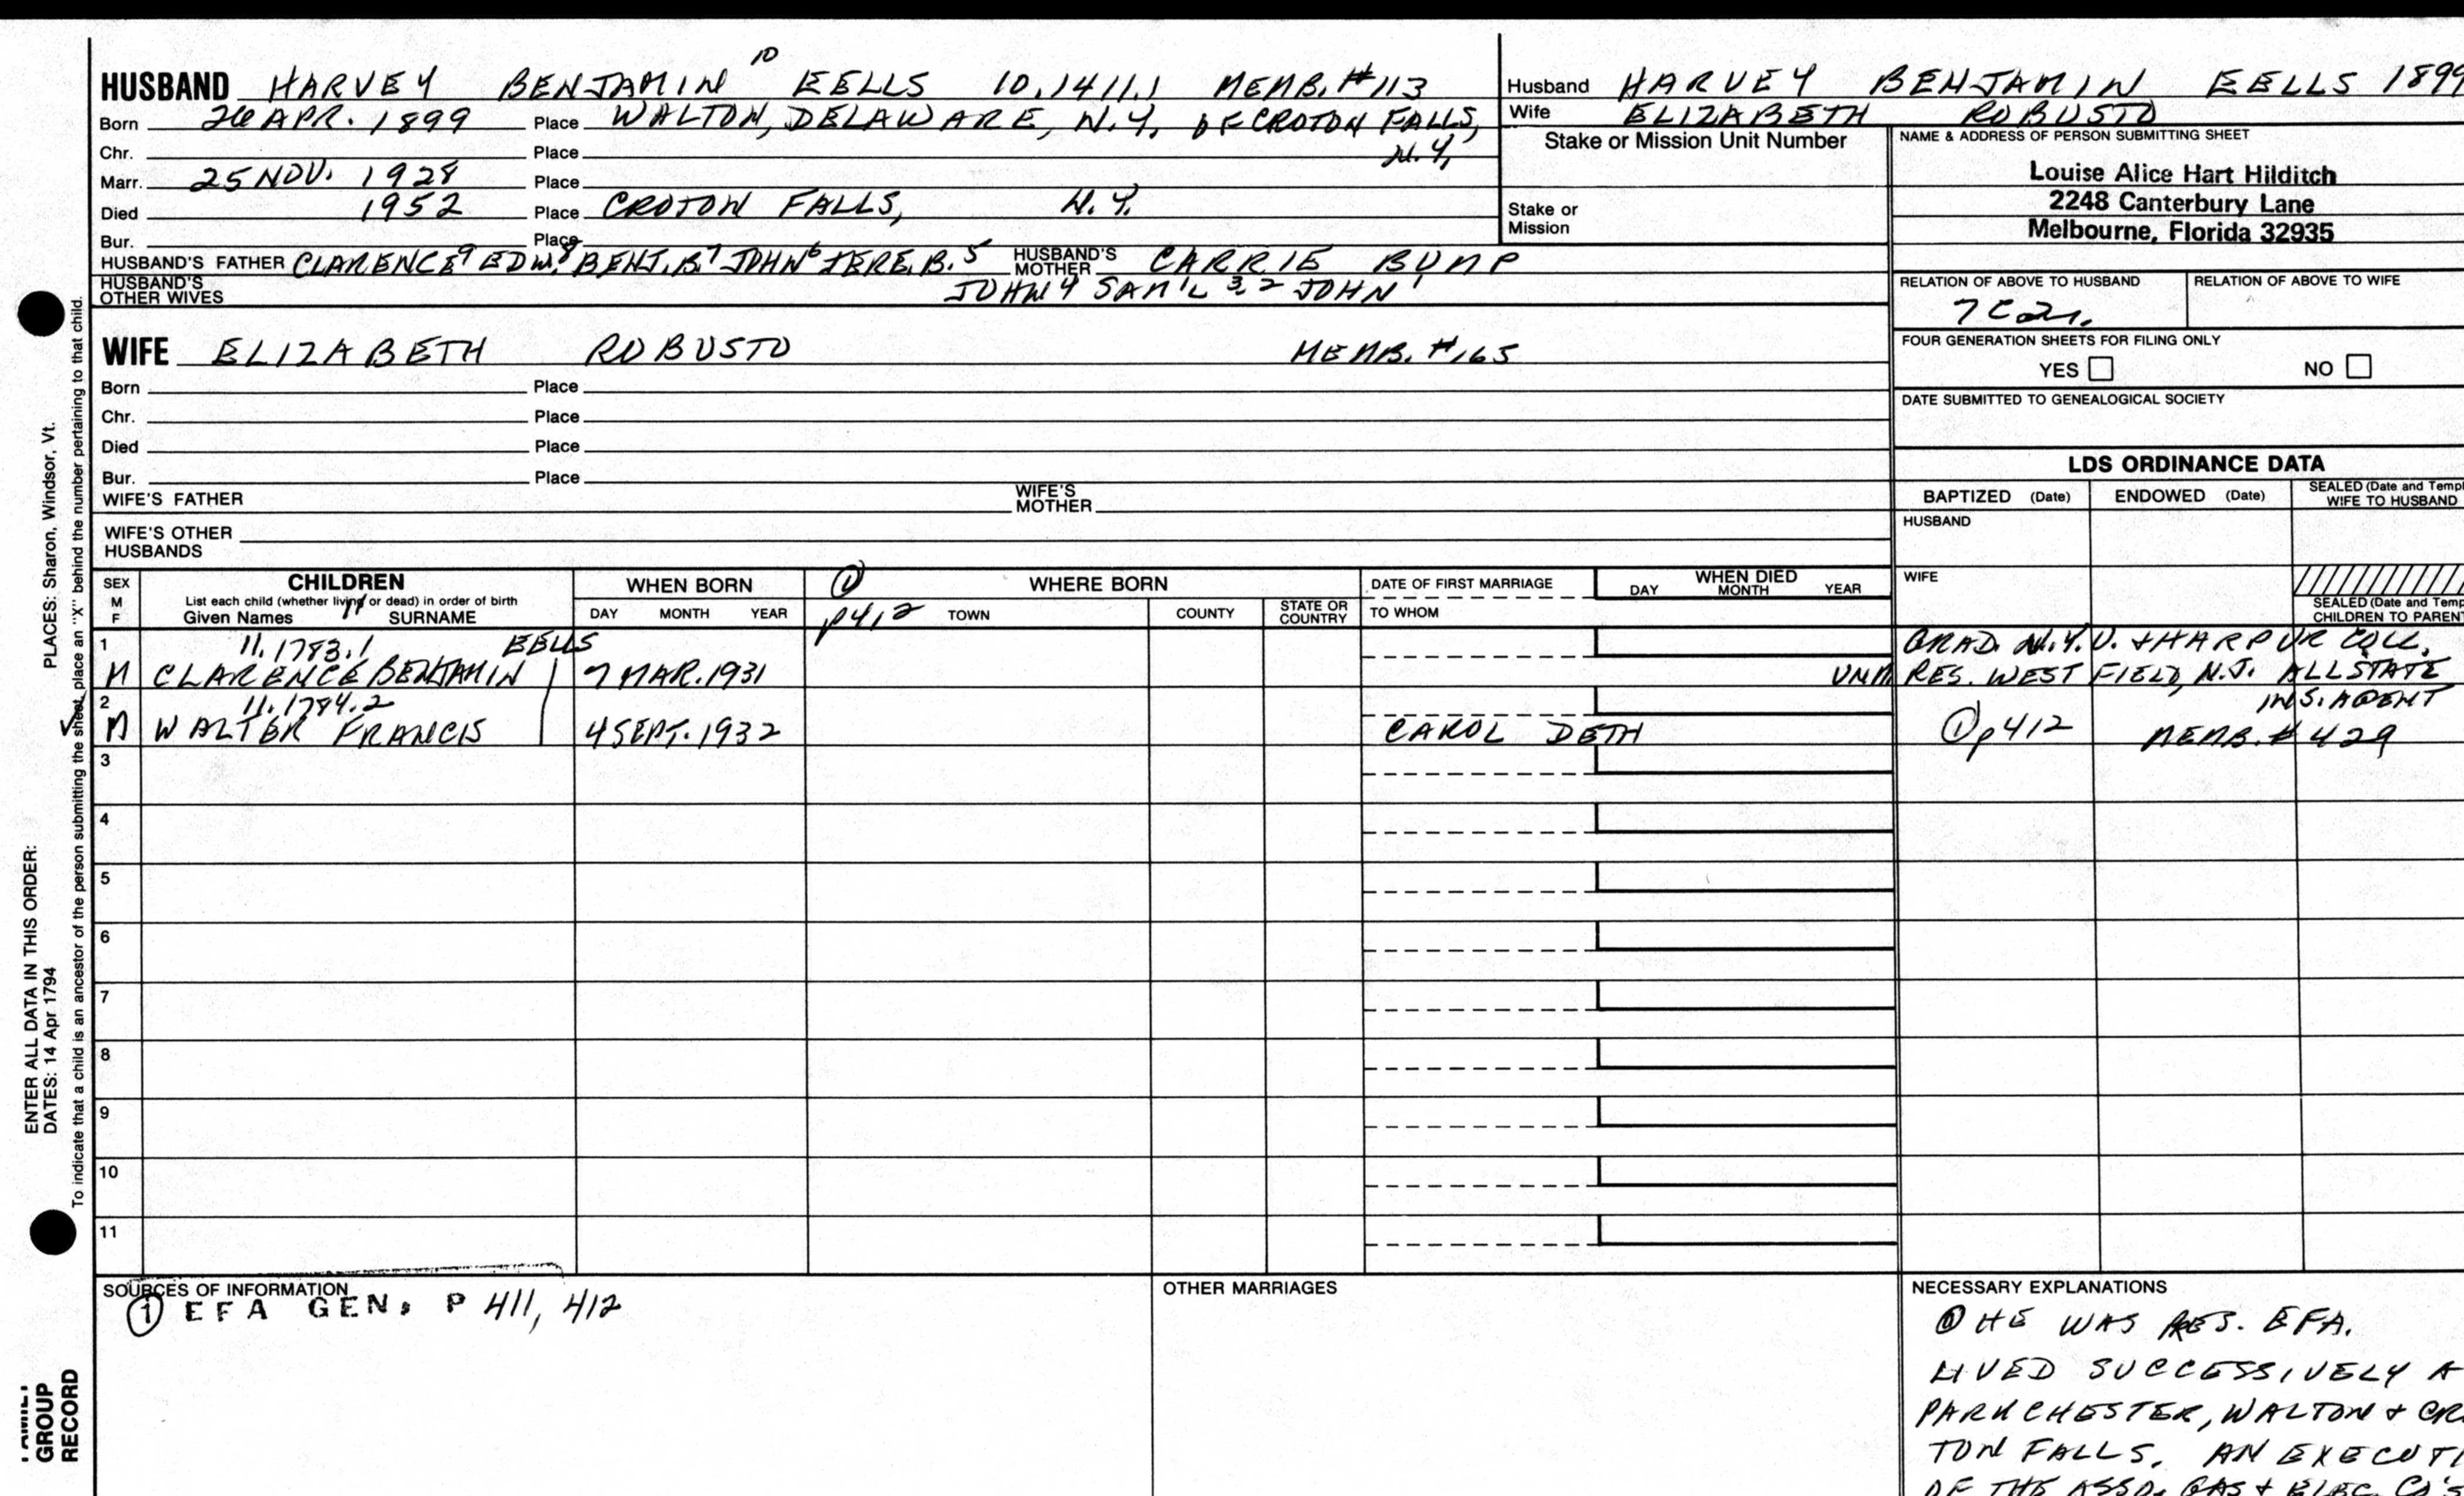 HUSBAND HARVEY BENJAMIN 10 EELLS 10.1411.1 MEMB. #113
Born 26 APR. 1899 Place WALTON, DELAWARE, N.Y. OF CROTON FALLS,
Chr. Place N.Y.
Marr. 25 NOV. 1928 Place
Died 1952 Place CROTON FALLS, N.Y.
Bur. Place
HUSBAND'S FATHER CLARENCE 9 EDW. 8 BENJ. B. 7 JOHN 6 JERE. B. 5 HUSBAND'S MOTHER CARRIE BUMP
HUSBAND'S OTHER WIVES JOHN 4 SAM'L 3, 2 JOHN 1
WIFE ELIZABETH ROBUSTO MEMB. #165
Born Place
Chr. Place
Died Place
Bur. Place
WIFE'S FATHER WIFE'S MOTHER
WIFE'S OTHER HUSBANDS
Husband HARVEY BENJAMIN EELLS 1899
Wife ELIZABETH ROBUSTO
Stake or Mission Unit Number
Stake or Mission
NAME & ADDRESS OF PERSON SUBMITTING SHEET
Louise Alice Hart Hilditch
2248 Canterbury Lane
Melbourne, Florida 32935
RELATION OF ABOVE TO HUSBAND RELATION OF ABOVE TO WIFE
7C2r.
FOUR GENERATION SHEETS FOR FILING ONLY
YES NO
DATE SUBMITTED TO GENEALOGICAL SOCIETY
LDS ORDINANCE DATA
BAPTIZED (Date) ENDOWED (Date) SEALED (Date and Templ
WIFE TO HUSBAND
HUSBAND
WIFE
SEALED (Date and Temp
CHILDREN TO PARENT
SEX M F CHILDREN WHEN BORN ① WHERE BORN DATE OF FIRST MARRIAGE WHEN DIED
List each child (whether living or dead) in order of birth
Given Names 11 SURNAME DAY MONTH YEAR p412 TOWN COUNTY STATE OR COUNTRY TO WHOM DAY MONTH YEAR
1 11.1783.1 EELLS GRAD. N.Y.U. + HARPUR COLL.
M CLARENCE BENJAMIN 7 MAR. 1931 UNM RES. WEST FIELD, N.J. ALLSTATE
2 11.1784.2 INS. AGENT
M WALTER FRANCIS 4 SEPT. 1932 CAROL DETH ① p412 MEMB. #429
3
4
5
6
7
8
9
10
11
SOURCES OF INFORMATION
① EFA GEN. P 411, 412
OTHER MARRIAGES
NECESSARY EXPLANATIONS
① HE WAS PRES. EFA.
LIVED SUCCESSIVELY A
PARKCHESTER, WALTON + CR
TON FALLS. AN EXECUTI
OF THE ASSD. GAS + ELEC. CO'S
PLACES: Sharon, Windsor, Vt.
ENTER ALL DATA IN THIS ORDER:
DATES: 14 Apr 1794
To indicate that a child is an ancestor of the person submitting the sheet, place an "X" behind the number pertaining to that child.
FAMILY
GROUP
RECORD